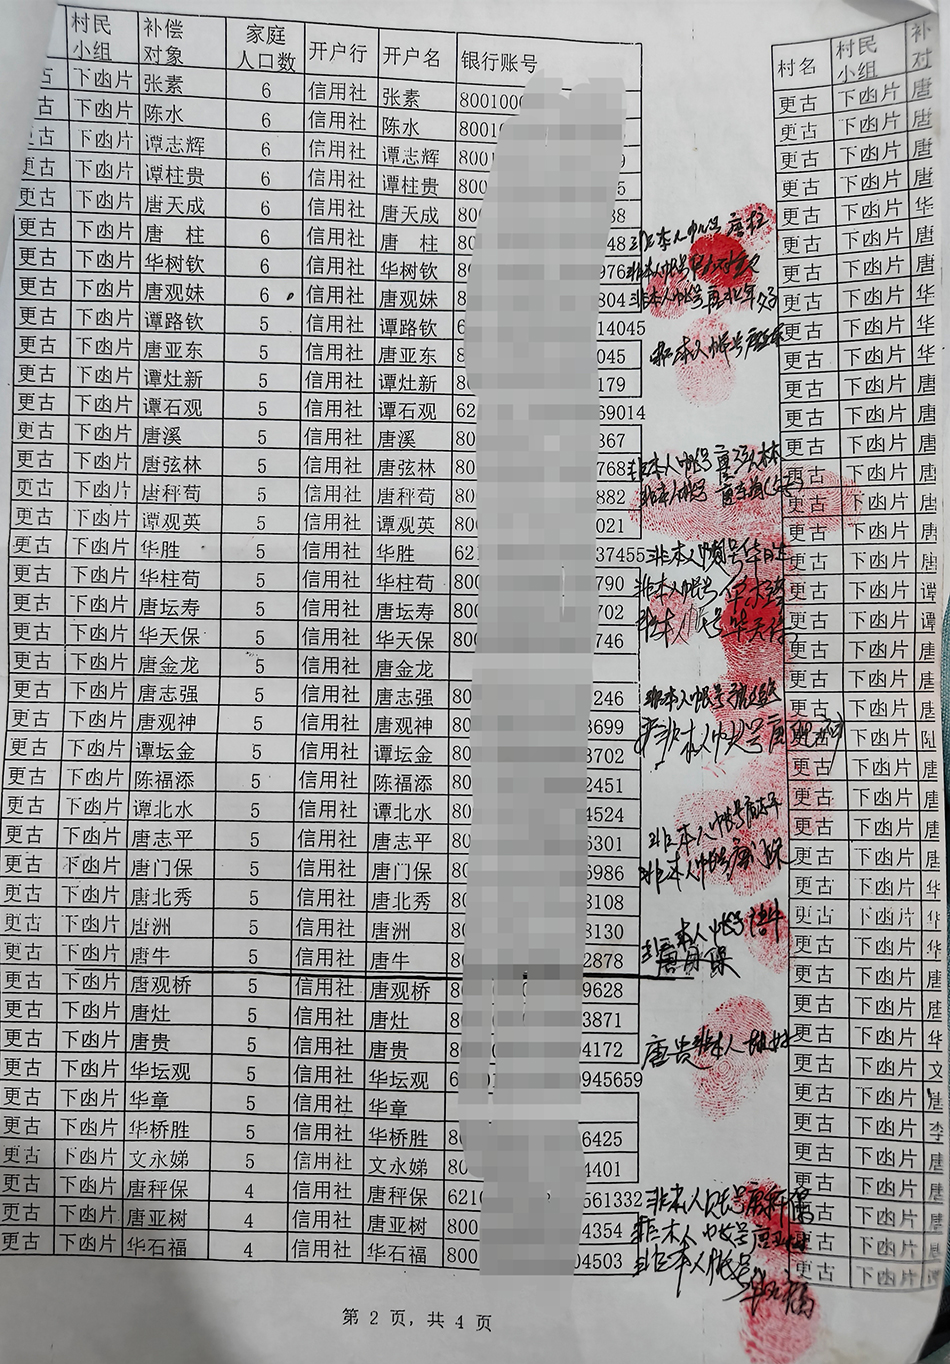 村民小组 补偿对象 家庭人口数 开户行 开户名 银行账号
下函片 张素 6 信用社 张素 800100
下函片 陈水 6 信用社 陈水 8001
下函片 谭志辉 6 信用社 谭志辉 800 9
更古 下函片 谭柱贵 6 信用社 谭柱贵 800 5
更古 下函片 唐天成 6 信用社 唐天成 80 38
更古 下函片 唐 柱 6 信用社 唐 柱 80 48 非本人帐号 唐柱
更古 下函片 华树钦 6 信用社 华树钦 8 976 非本人帐号
更古 下函片 唐观妹 6 信用社 唐观妹 8 804 非本人帐号
更古 下函片 谭路钦 5 信用社 谭路钦 6 14045
更古 下函片 唐亚东 5 信用社 唐亚东 80 045 非本人帐号 唐亚东
更古 下函片 谭灶新 5 信用社 谭灶新 80 179
更古 下函片 谭石观 5 信用社 谭石观 62 69014
更古 下函片 唐溪 5 信用社 唐溪 80 367
更古 下函片 唐弦林 5 信用社 唐弦林 80 768 非本人帐号 唐弦林
更古 下函片 唐秤苟 5 信用社 唐秤苟 80 882 非本人帐号
更古 下函片 谭观英 5 信用社 谭观英 80 021
更古 下函片 华胜 5 信用社 华胜 621 37455 非本人帐号 华胜
更古 下函片 华柱苟 5 信用社 华柱苟 800 790 非本人帐号
更古 下函片 唐坛寿 5 信用社 唐坛寿 800 702
更古 下函片 华天保 5 信用社 华天保 800 746 非本人帐号 华天保
更古 下函片 唐金龙 5 信用社 唐金龙
更古 下函片 唐志强 5 信用社 唐志强 80 246 非本人帐号
更古 下函片 唐观神 5 信用社 唐观神 80 3699 非本人帐号 唐观神
更古 下函片 谭坛金 5 信用社 谭坛金 80 3702
更古 下函片 陈福添 5 信用社 陈福添 80 2451
更古 下函片 谭北水 5 信用社 谭北水 80 4524
更古 下函片 唐志平 5 信用社 唐志平 80 6301 非本人帐号 唐志平
更古 下函片 唐门保 5 信用社 唐门保 80 6986 非本人帐号 唐门保
更古 下函片 唐北秀 5 信用社 唐北秀 80 3108
更古 下函片 唐洲 5 信用社 唐洲 80 3130
更古 下函片 唐牛 5 信用社 唐牛 80 2878 非本人帐号 唐牛
更古 下函片 唐观桥 5 信用社 唐观桥 80 9628
更古 下函片 唐灶 5 信用社 唐灶 80 3871
更古 下函片 唐贵 5 信用社 唐贵 80 4172 唐贵非本人
更古 下函片 华坛观 5 信用社 华坛观 6 945659
更古 下函片 华章 5 信用社 华章
更古 下函片 华桥胜 5 信用社 华桥胜 80 6425
更古 下函片 文永娣 5 信用社 文永娣 80 4401
更古 下函片 唐秤保 4 信用社 唐秤保 621 561332 非本人帐号
更古 下函片 唐亚树 4 信用社 唐亚树 800 4354 非本人帐号 唐亚树
更古 下函片 华石福 4 信用社 华石福 800 04503 非本人帐号 华石福
第 2 页，共 4 页
村名 村民小组
更古 下函片 唐
更古 下函片 唐
更古 下函片 唐
更古 下函片 唐
更古 下函片 华
更古 下函片 唐
更古 下函片 唐
更古 下函片 华
更古 下函片 华
更古 下函片 华
更古 下函片 唐
更古 下函片 唐
更古 下函片 唐
更古 下函片 唐
更古 下函片 唐
更古 下函片 唐
更古 下函片 唐
更古 下函片 谭
更古 下函片 谭
更古 下函片 唐
更古 下函片 唐
更古 下函片 唐
更古 下函片
更古 下函片 唐
更古 下函片 唐
更古 下函片 唐
更古 下函片 唐
更古 下函片 华
更古 下函片 华
更古 下函片 华
更古 下函片 唐
更古 下函片 唐
更古 下函片 华
更古 下函片 文
更古 下函片 唐
更古 下函片 李
更古 下函片 唐
更古 下函片 唐
更古 下函片 唐
更古 下函片
更古 下函片 谭